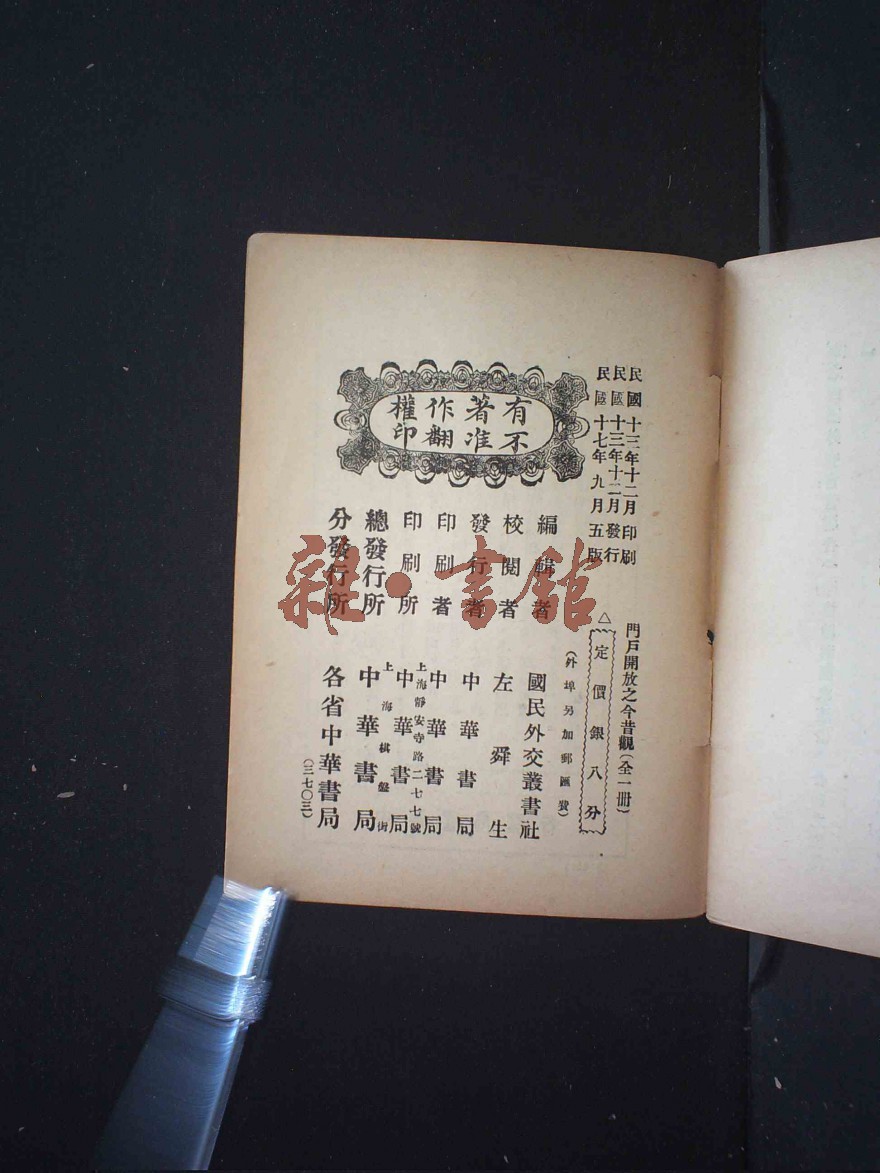 民國十三年十二月印刷
民國十三年十二月發行
民國十七年九月五版
有著作權
不准翻印
門戶開放之今昔觀（全一冊）
△定價銀八分
（外埠另加郵匯費）
編輯者 國民外交叢書社
校閱者 左舜生
發行者 中華書局
印刷者 中華書局
印刷所 上海靜安寺路二七七號 中華書局
總發行所 上海棋盤街 中華書局
分發行所 各省中華書局
（三七〇三）
雜·書館